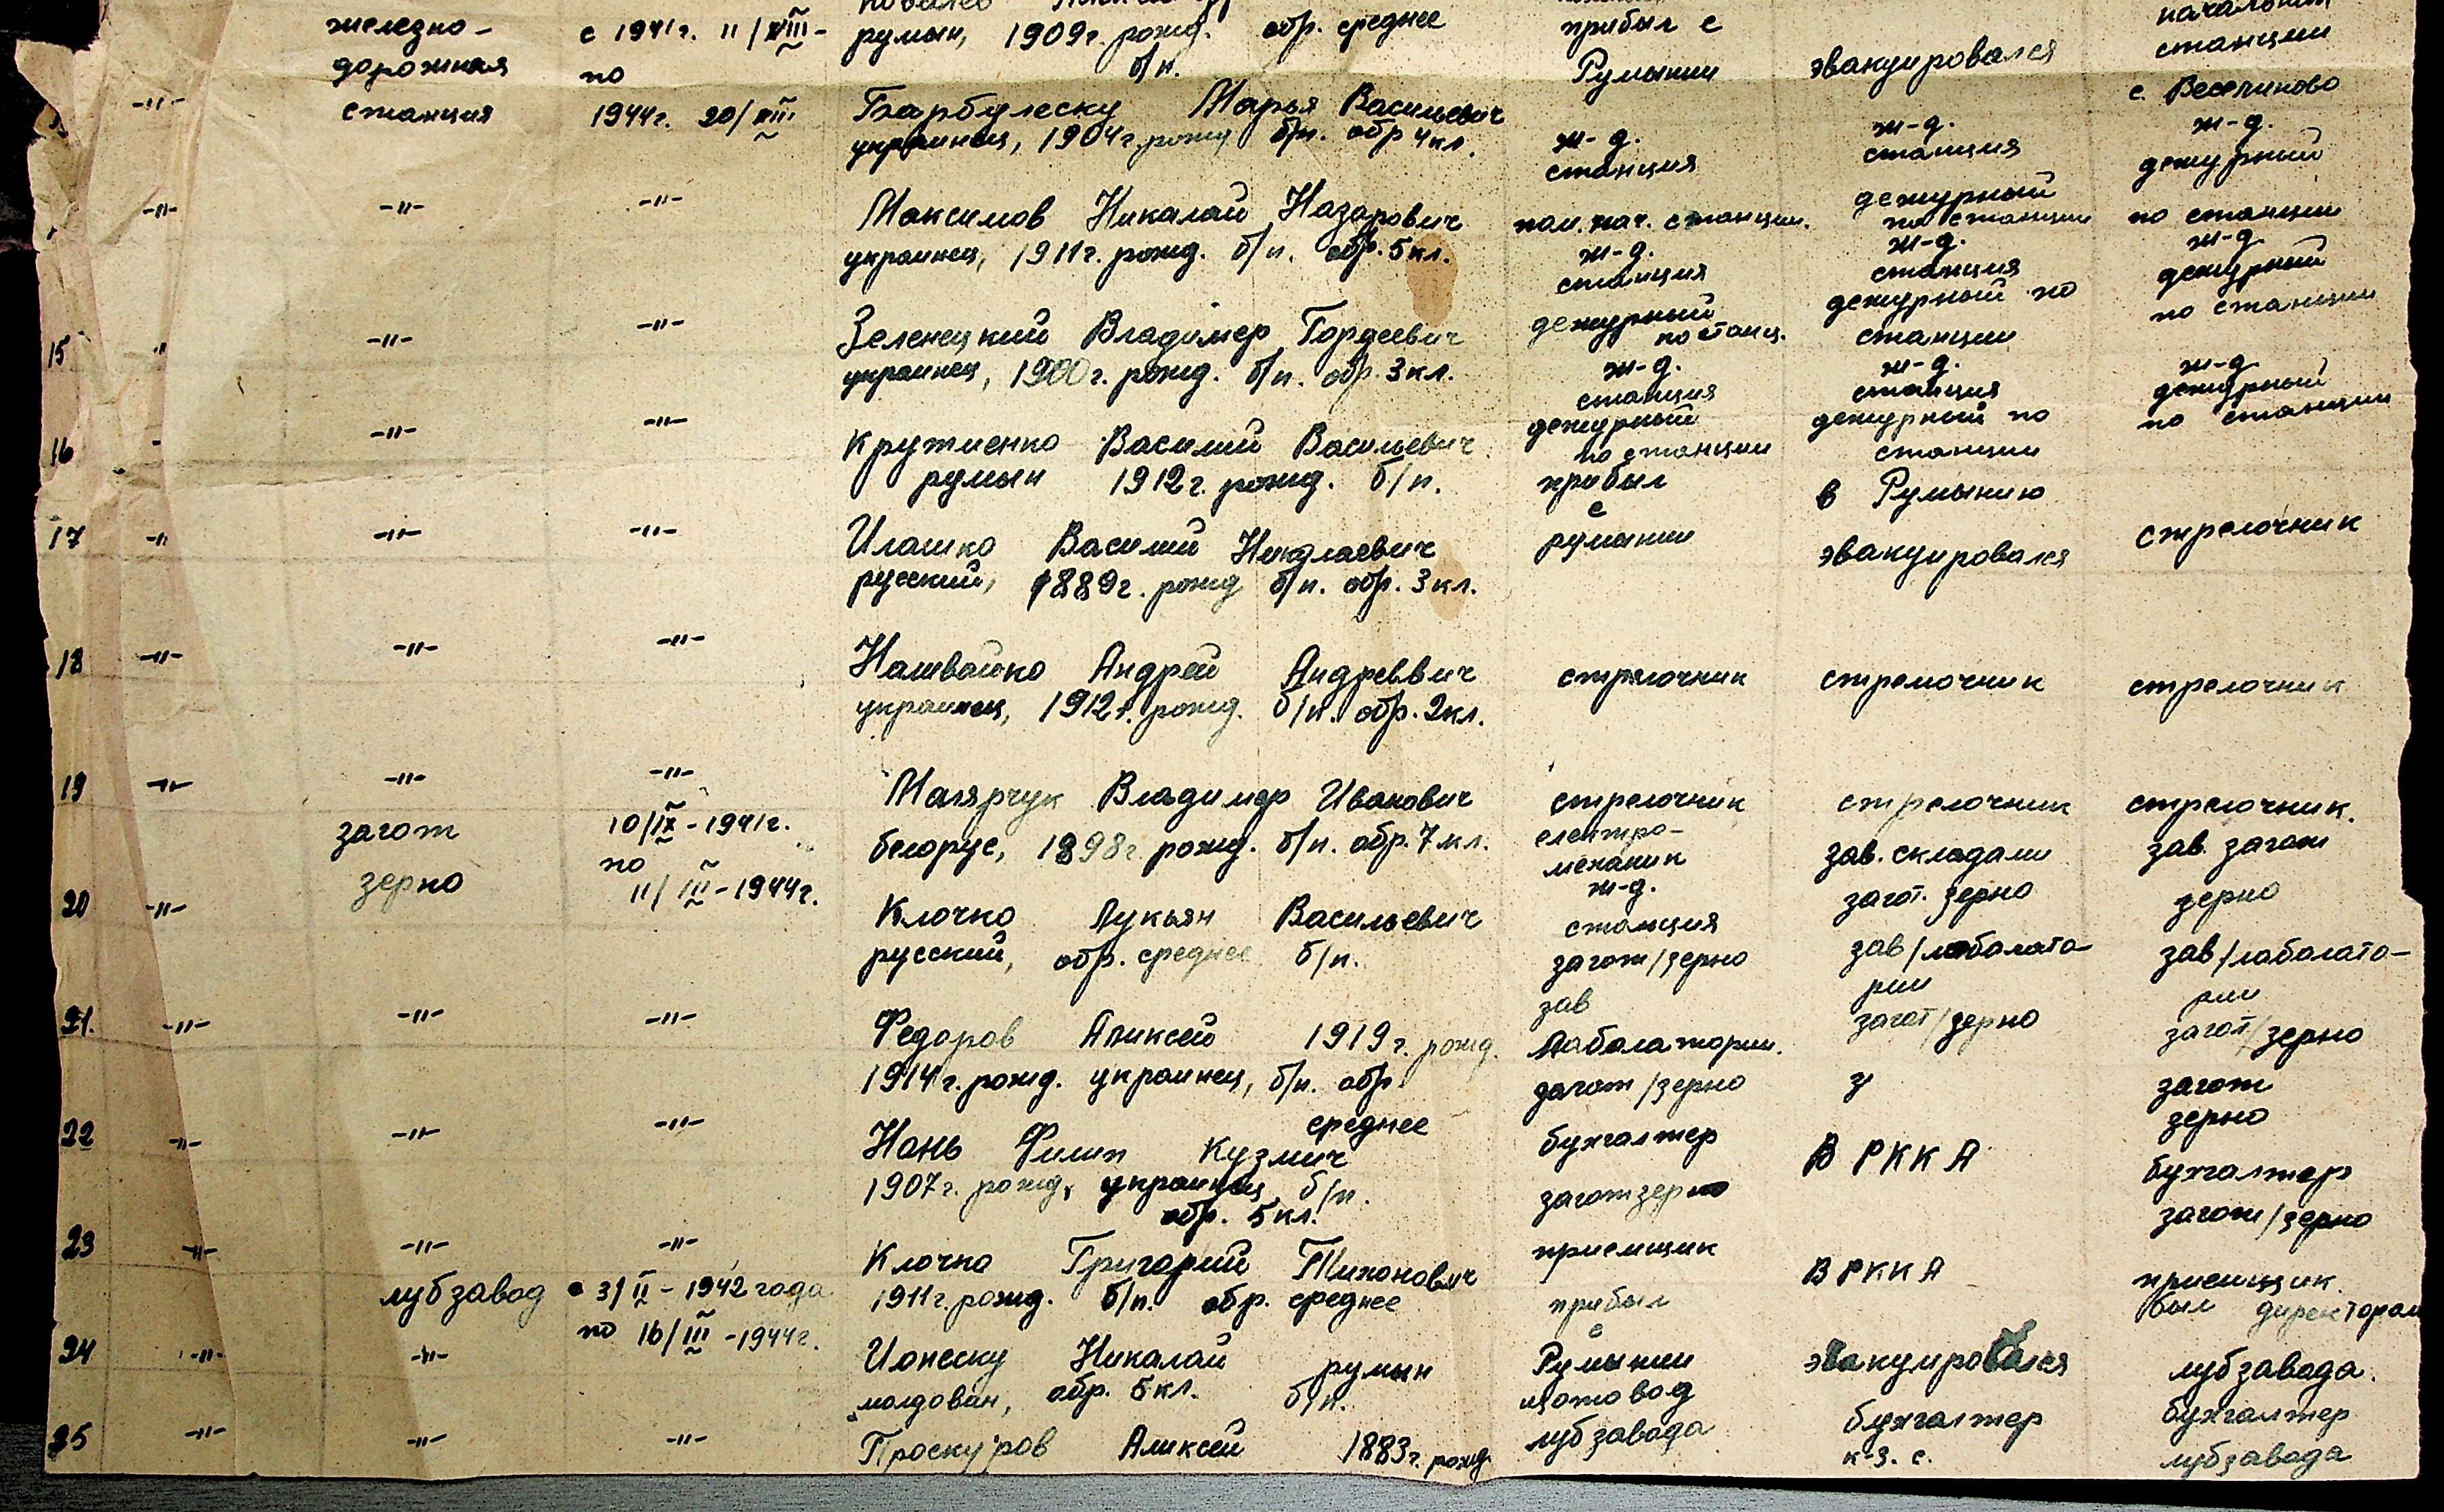 железно- с 1941г. 11/VIII- румын, 1909г. рожд. обр. среднее прибыл с станции
дорожная по б/п. Румынии эвакуировался с. Веселиново
-"- станция 1944г. 20/III Барбулеску Марья Васильевич ж-д. ж-д. ж-д.
украинец, 1904г. рожд б/п. обр 4кл. станция станция дежурный
-"- -"- -"- Максимов Николай Назарович пом. нач. станции. дежурный по станции по станции
украинец, 1911г. рожд. б/п. обр. 5кл. ж-д. станция ж-д. станция ж-д. дежурный
15 -"- -"- -"- Зеленецкий Владимер Гордеевич дежурный по станц. дежурный по станции по станции
украинец, 1900г. рожд. б/п. обр. 3кл. ж-д. станция ж-д. станция ж-д. дежурный
16 -"- -"- -"- Кружиенко Василий Васильевич дежурный по станции дежурный по станции по станции
румын 1912г. рожд. б/п. прибыл в Румынию
17 -"- -"- -"- Илашко Василий Николаевич с румынии эвакуировался стрелочник
русский, 1889г. рожд б/п. обр. 3кл.
18 -"- -"- -"- Нашвайко Андрей Андреввич стрелочник стрелочник стрелочник
украинец, 1912г. рожд. б/п. обр. 2кл.
19 -"- -"- -"- Малярчук Владимер Иванович стрелочник стрелочник стрелочник.
загот 10/IX-1941г. белорус, 1898г. рожд. б/п. обр. 7кл. електро- зав. складами зав. загот
зерно по механик загот. зерно зерно
20 -"- 11/III-1944г. Клочко Лукьян Васильевич ж-д. станция
русский, обр. среднее б/п. загот/зерно зав/лаболато- зав/лаболато-
зав рии рии
21. -"- -"- -"- Федоров Аликсей 1919г. рожд. лаболатории. загот/зерно загот/зерно
1914г. рожд. украинец, б/п. обр. загот/зерно з загот
среднее зерно
22 -"- -"- -"- Нань Филип Кузмич бухгалтер В РККА бухгалтер
1907г. рожд, украинец, б/п. заготзерно загот/зерно
обр. 5кл.
23 -"- -"- -"- Клочко Григорий Тихонович приемщик В РККА приемщик.
лубзавод с 3/II-1942 года 1911г. рожд. б/п. обр. среднее прибыл был директором
по 16/III-1944г. с
24 -"- -"- Ионеску Николай румын Румынии эвакуировался лубзавода.
молдован, обр. 5кл. б/п. щотовод бухгалтер бухгалтер
25 -"- -"- -"- Проскуров Аликсей 1883г. рожд. лубзавода к-з. с. лубзавода